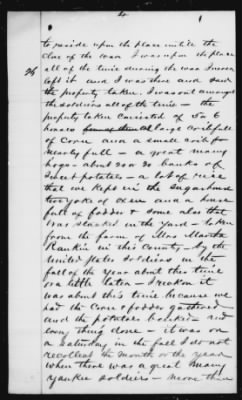 to reside upon the place until the
close of the war I was upon the place
all of the time during the war I never
left it and I was there and saw
the property taken. I was out amongst
the soldiers all of the time — the
property taken consisted of 5 or 6
horses large cribfull
of corn and a small crib
nearly full — a great many
hogs — about 20 or 30 banks of
sweet potatoes — a lot of rice
that we kept in the sugarhouse
two yoke of oxen and a house
full of fodder & some also that
was stacked in the yard — taken
from the farm of Mrs Martha
Rankin in this County — by the
United States Soldiers in the
fall of the year about this time
or a little later — I reckon it
was about this time because we
had the corn & fodder gathered
and the potatoes banked and
every thing done — it was on
a Saturday in the fall I do not
recollect the month or the year
when there was a great many
Yankee soldiers — more than